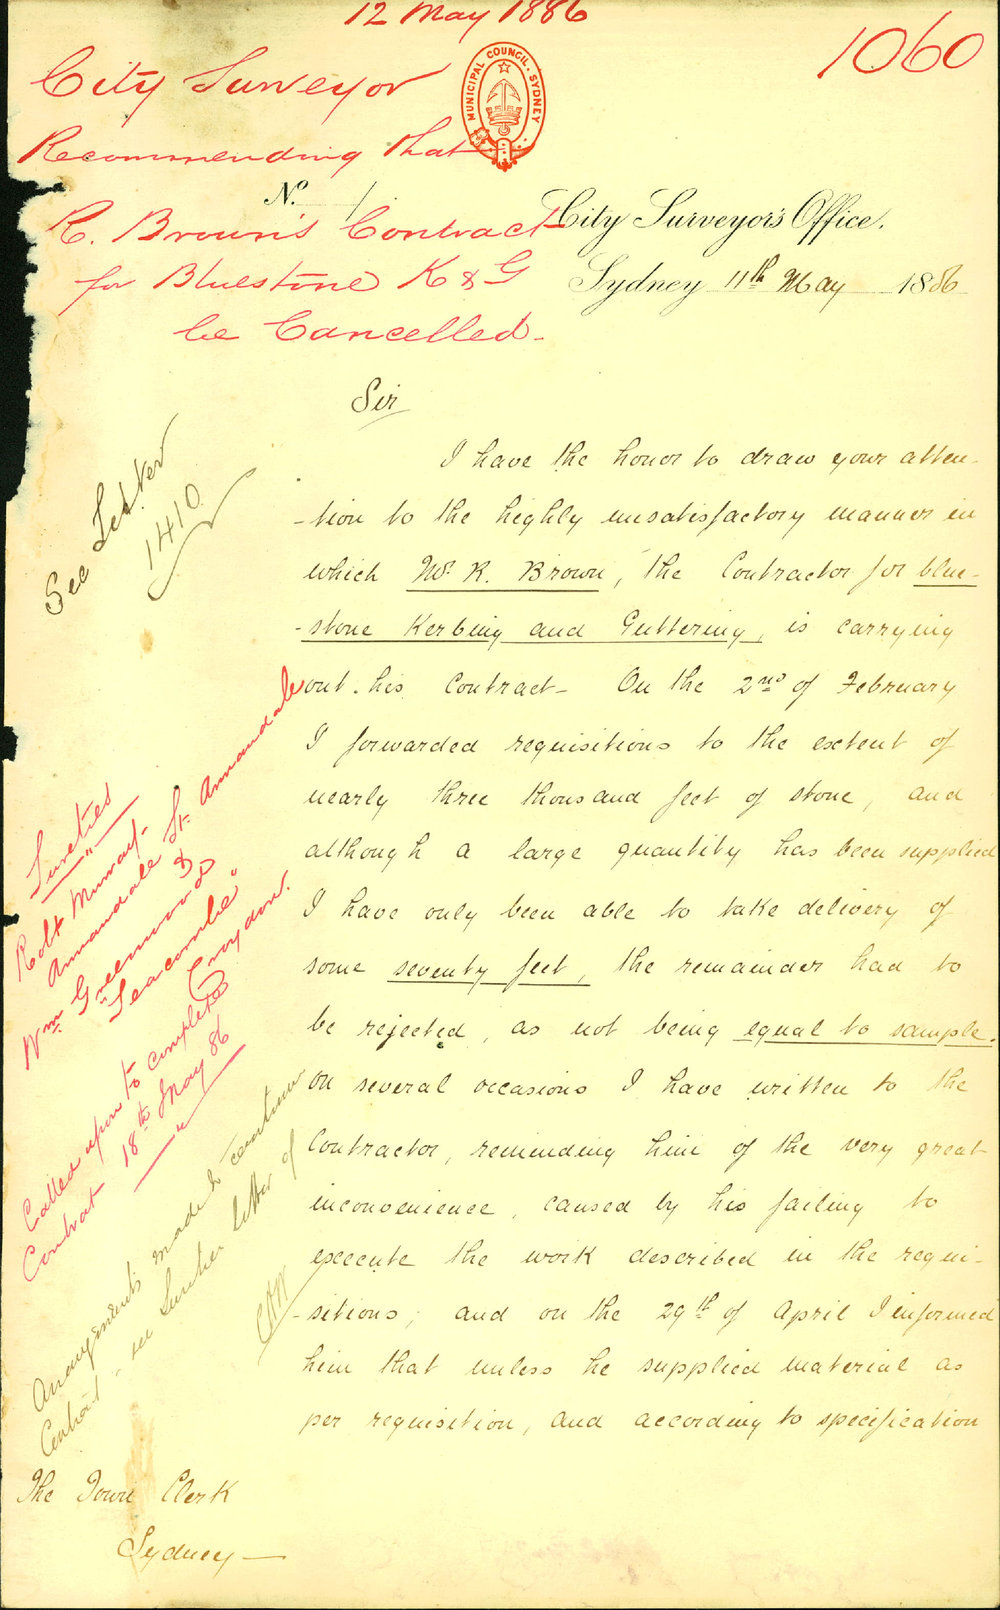 12 May 1886
1060
City Surveyor
Recommending that
R. Brown's Contract
for Bluestone K & G
be Cancelled -
MUNICIPAL COUNCIL. SYDNEY
No. 1
City Surveyor's Office.
Sydney 11th May 1886
Sir
I have the honor to draw your atten-
-tion to the highly unsatisfactory manner in
which Mr. R. Brown, the Contractor for blue-
-stone Kerbing and Guttering, is carrying
out his Contract - On the 2nd of February
I forwarded requisitions to the extent of
nearly three thousand feet of stone, and
although a large quantity has been supplied
I have only been able to take delivery of
some seventy feet, the remainder had to
be rejected, as not being equal to sample.
On several occasions I have written to the
Contractor, reminding him of the very great
inconvenience, caused by his failing to
execute the work described in the requi-
-sitions; and on the 29th of April I informed
him that unless he supplied material as
per requisition, and according to specification
The Town Clerk
Sydney —
See Letter
1410
Sureties
Robt Murray -
Annandale St. Annandale
&
Wm Greenwood
"Seacombe"
Croydon.
Called upon to complete
Contract 18th May 86
Arrangements made to continue
Contract - see further letter of